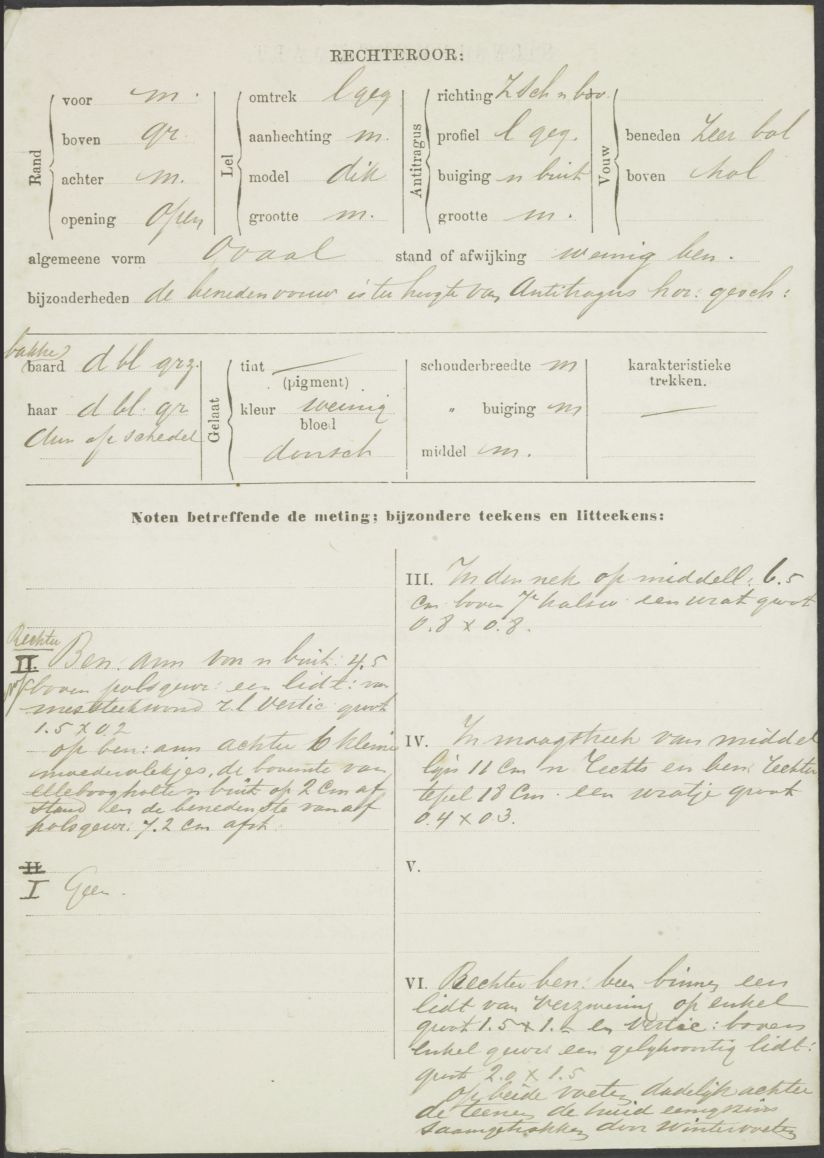 RECHTEROOR:
Rand
voor m.
boven gr.
achter m.
opening open
Lel
omtrek l geg
aanhechting m.
model dik
grootte m.
Antitragus
richting z sch n bov.
profiel l geg.
buiging n buit
grootte m.
Vouw
beneden zeer bol
boven hol
algemeene vorm Ovaal stand of afwijking weinig ben.
bijzonderheden de benedenvouw is ter hoogte van Antitragus hor: gesch:
bakke
baard d bl grz.
haar d bl. gr
dun op schedel
Gelaat
tint —
(pigment)
kleur weinig
bloed
donsch
schouderbreedte m
" buiging m
middel m.
karakteristieke
trekken.
—
Noten betreffende de meting; bijzondere teekens en litteekens:
Rechter
II. Ben. arm voor n buit. 4.5
boven polsgewr: een lidt: van
messteekwond r. l vertic groot
1.5 x 0.2
op ben: arm achter 6 kleine
moedervlekjes, de bovenste van
elleboogholte n buit op 2 cm af
stand en de benedenste vanaf
polsgewr. 7.2 cm afst.
II
I Geen.
III. In den nek op middell: 6.5
cm boven 7e halsw. een wrat groot
0.8 x 0.8.
IV. In maagstreek van middel
lijn 11 cm n rechts en ben. rechter
tepel 18 cm een wratje groot
0.4 x 03.
V.
VI. Rechter ben: been binnen een
lidt van verzwering op enkel
groot 1.5 x 1. en vertic: boven
enkel gewr een gelijksoortig lidt:
groot 2.0 x 1.5
Op beide voeten dadelijk achter
de teenen de huid eenigszins
saamgetrokken door wintervoeten